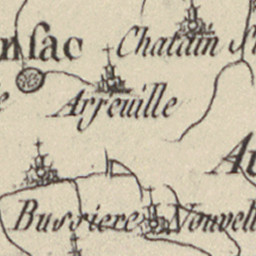 nsac
Chatain S
Arfeuille
Au
Bussiere Nouvell